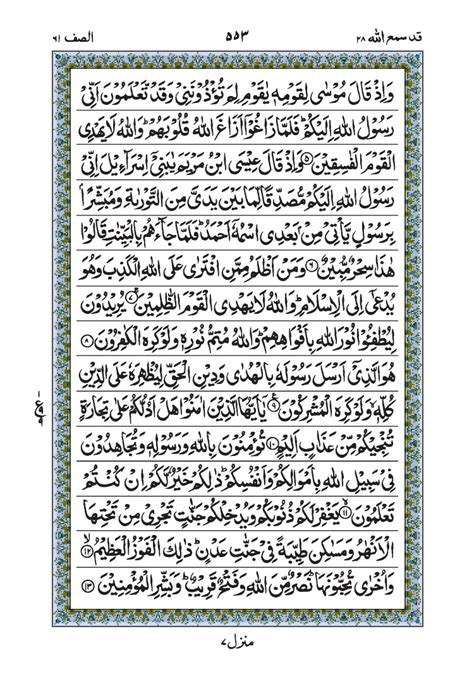 قد سمع الله ۲۸ ۵۵۳ الصف ۶۱
وَاِذْ قَالَ مُوْسٰى لِقَوْمِهٖ يٰقَوْمِ لِمَ تُؤْذُوْنَنِىْ وَقَدْ تَّعْلَمُوْنَ اَنِّىْ
رَسُوْلُ اللّٰهِ اِلَيْكُمْ ؕ فَلَمَّا زَاغُوْۤا اَزَاغَ اللّٰهُ قُلُوْبَهُمْ ؕ وَاللّٰهُ لَا يَهْدِى
الْقَوْمَ الْفٰسِقِيْنَ ۵ وَاِذْ قَالَ عِيْسَى ابْنُ مَرْيَمَ يٰبَنِىْۤ اِسْرَآءِيْلَ اِنِّىْ
رَسُوْلُ اللّٰهِ اِلَيْكُمْ مُّصَدِّقًا لِّمَا بَيْنَ يَدَىَّ مِنَ التَّوْرٰىةِ وَمُبَشِّرًۢا
بِرَسُوْلٍ يَّاْتِىْ مِنْۢ بَعْدِى اسْمُهٗۤ اَحْمَدُ ؕ فَلَمَّا جَآءَهُمْ بِالْبَيِّنٰتِ قَالُوْا
هٰذَا سِحْرٌ مُّبِيْنٌ ۶ وَمَنْ اَظْلَمُ مِمَّنِ افْتَرٰى عَلَى اللّٰهِ الْكَذِبَ وَهُوَ
يُدْعٰۤى اِلَى الْاِسْلَامِ ؕ وَاللّٰهُ لَا يَهْدِى الْقَوْمَ الظّٰلِمِيْنَ ۷ يُرِيْدُوْنَ
لِيُطْفِئُوْا نُوْرَ اللّٰهِ بِاَفْوَاهِهِمْ وَاللّٰهُ مُتِمُّ نُوْرِهٖ وَلَوْ كَرِهَ الْكٰفِرُوْنَ ۸
هُوَ الَّذِىْۤ اَرْسَلَ رَسُوْلَهٗ بِالْهُدٰى وَدِيْنِ الْحَقِّ لِيُظْهِرَهٗ عَلَى الدِّيْنِ
كُلِّهٖ وَلَوْ كَرِهَ الْمُشْرِكُوْنَ ۹ يٰۤاَيُّهَا الَّذِيْنَ اٰمَنُوْا هَلْ اَدُلُّكُمْ عَلٰى تِجَارَةٍ
تُنْجِيْكُمْ مِّنْ عَذَابٍ اَلِيْمٍ ۱۰ تُؤْمِنُوْنَ بِاللّٰهِ وَرَسُوْلِهٖ وَتُجَاهِدُوْنَ
فِىْ سَبِيْلِ اللّٰهِ بِاَمْوَالِكُمْ وَاَنْفُسِكُمْ ؕ ذٰلِكُمْ خَيْرٌ لَّكُمْ اِنْ كُنْتُمْ
تَعْلَمُوْنَ ۱۱ يَغْفِرْ لَكُمْ ذُنُوْبَكُمْ وَيُدْخِلْكُمْ جَنّٰتٍ تَجْرِىْ مِنْ تَحْتِهَا
الْاَنْهٰرُ وَمَسٰكِنَ طَيِّبَةً فِىْ جَنّٰتِ عَدْنٍ ؕ ذٰلِكَ الْفَوْزُ الْعَظِيْمُ ۱۲
وَاُخْرٰى تُحِبُّوْنَهَا ؕ نَصْرٌ مِّنَ اللّٰهِ وَفَتْحٌ قَرِيْبٌ ؕ وَبَشِّرِ الْمُؤْمِنِيْنَ ۱۳
منزل ۷